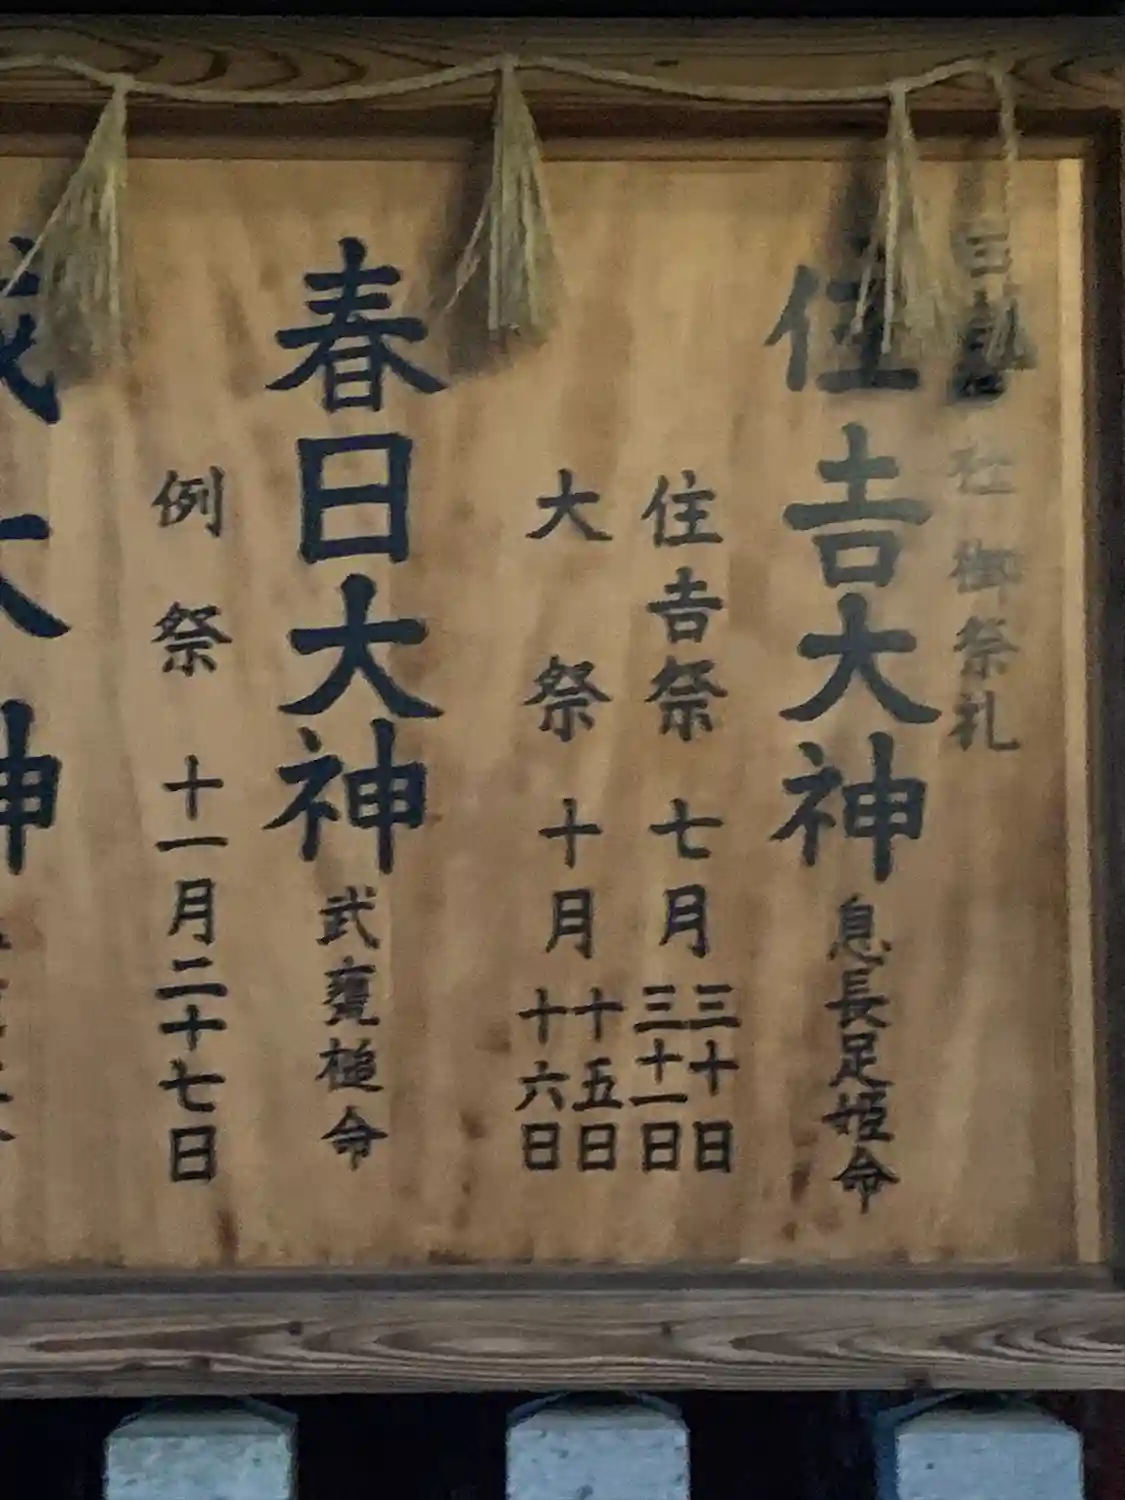 社御祭礼
住吉大神 息長足姫命
住吉祭 七月 三十日
三十一日
大祭 十月 十五日
十六日
春日大神 武甕槌命
例祭 十一月二十七日
大神